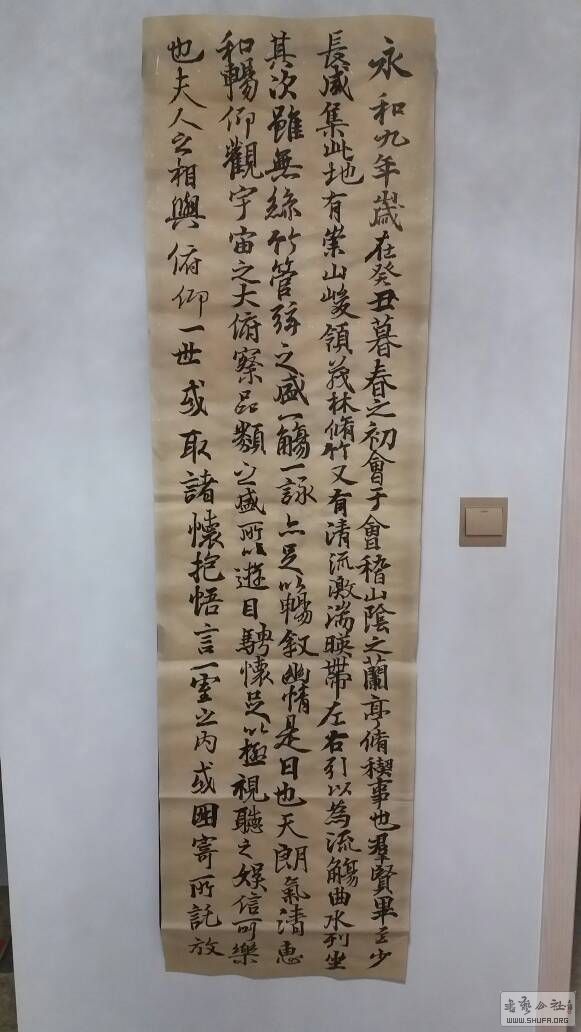 永和九年歲在癸丑暮春之初會于會稽山陰之蘭亭脩稧事也羣賢畢至少
長咸集此地有崇山峻領茂林脩竹又有清流激湍暎帶左右引以為流觴曲水列坐
其次雖無絲竹管弦之盛一觴一詠亦足以暢叙幽情是日也天朗氣清惠
和暢仰觀宇宙之大俯察品類之盛所以遊目騁懷足以極視聽之娛信可樂
也夫人之相與俯仰一世或取諸懷抱悟言一室之內或因寄所託放
書藝公社
WWW.SHUFA.ORG